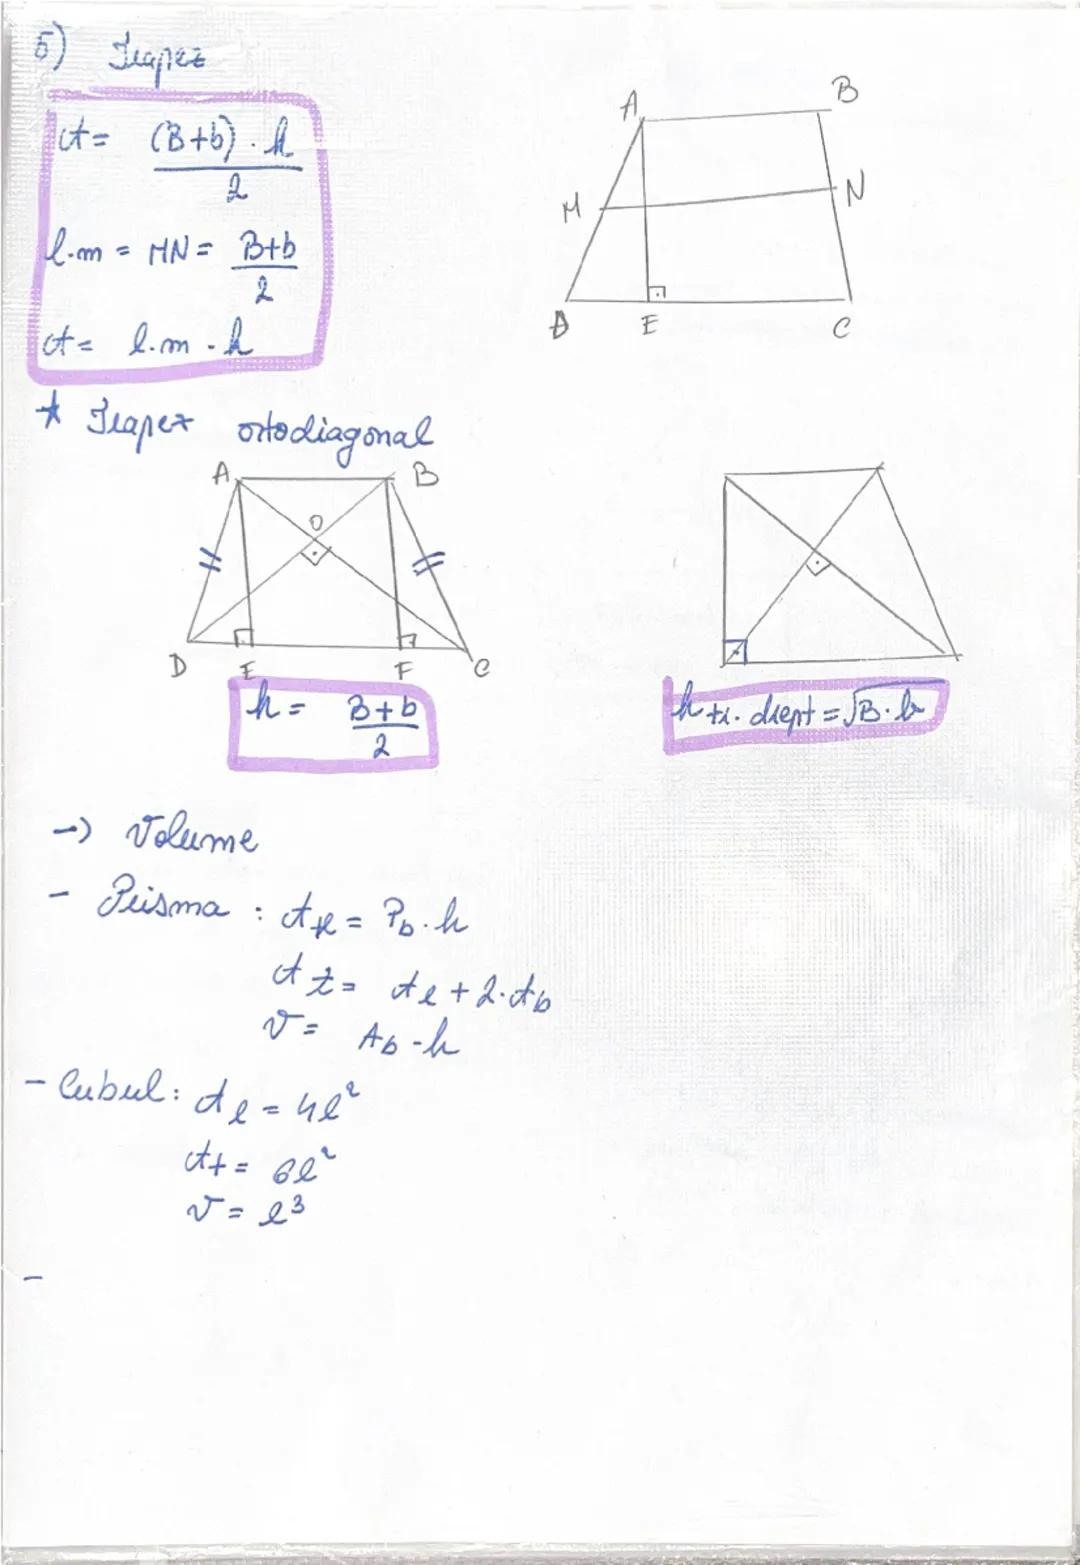 5) Trapez
A = (B+b) · h
2
l.m = MN = B+b
2
A = l.m · h
A B
M N
D E C
* Trapez ortodiagonal
A B
O
D E F C
h = B+b
2
h tr. drept = √B·b
→ Volume
- Prisma : Al = Pb · h
At = Al + 2·Ab
V = Ab · h
- Cubul : Al = 4l²
At = 6l²
V = l³
-